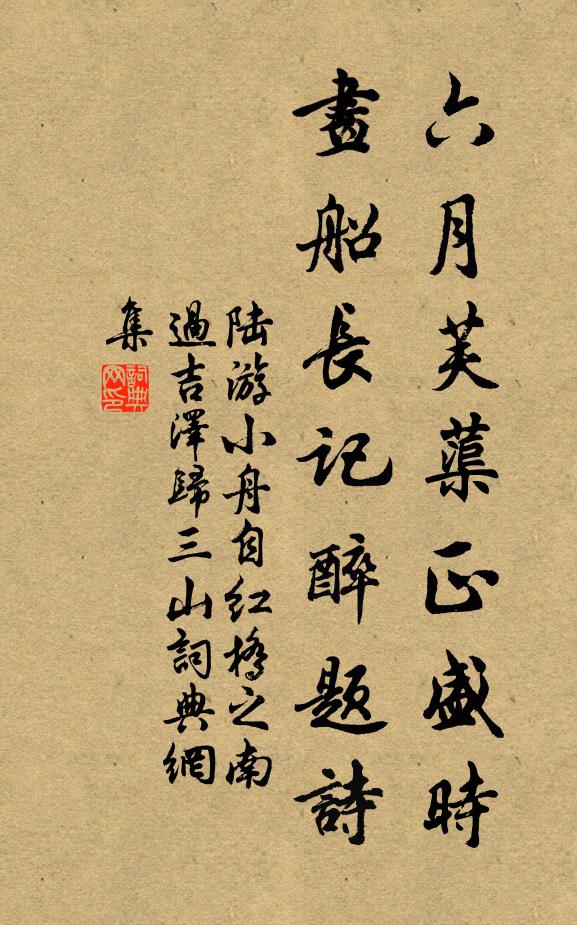 六月芙蕖正盛時
畫船長記醉題詩
陆游小舟自红橋之南
過吉澤歸三山詞典網
集
詞典
网印